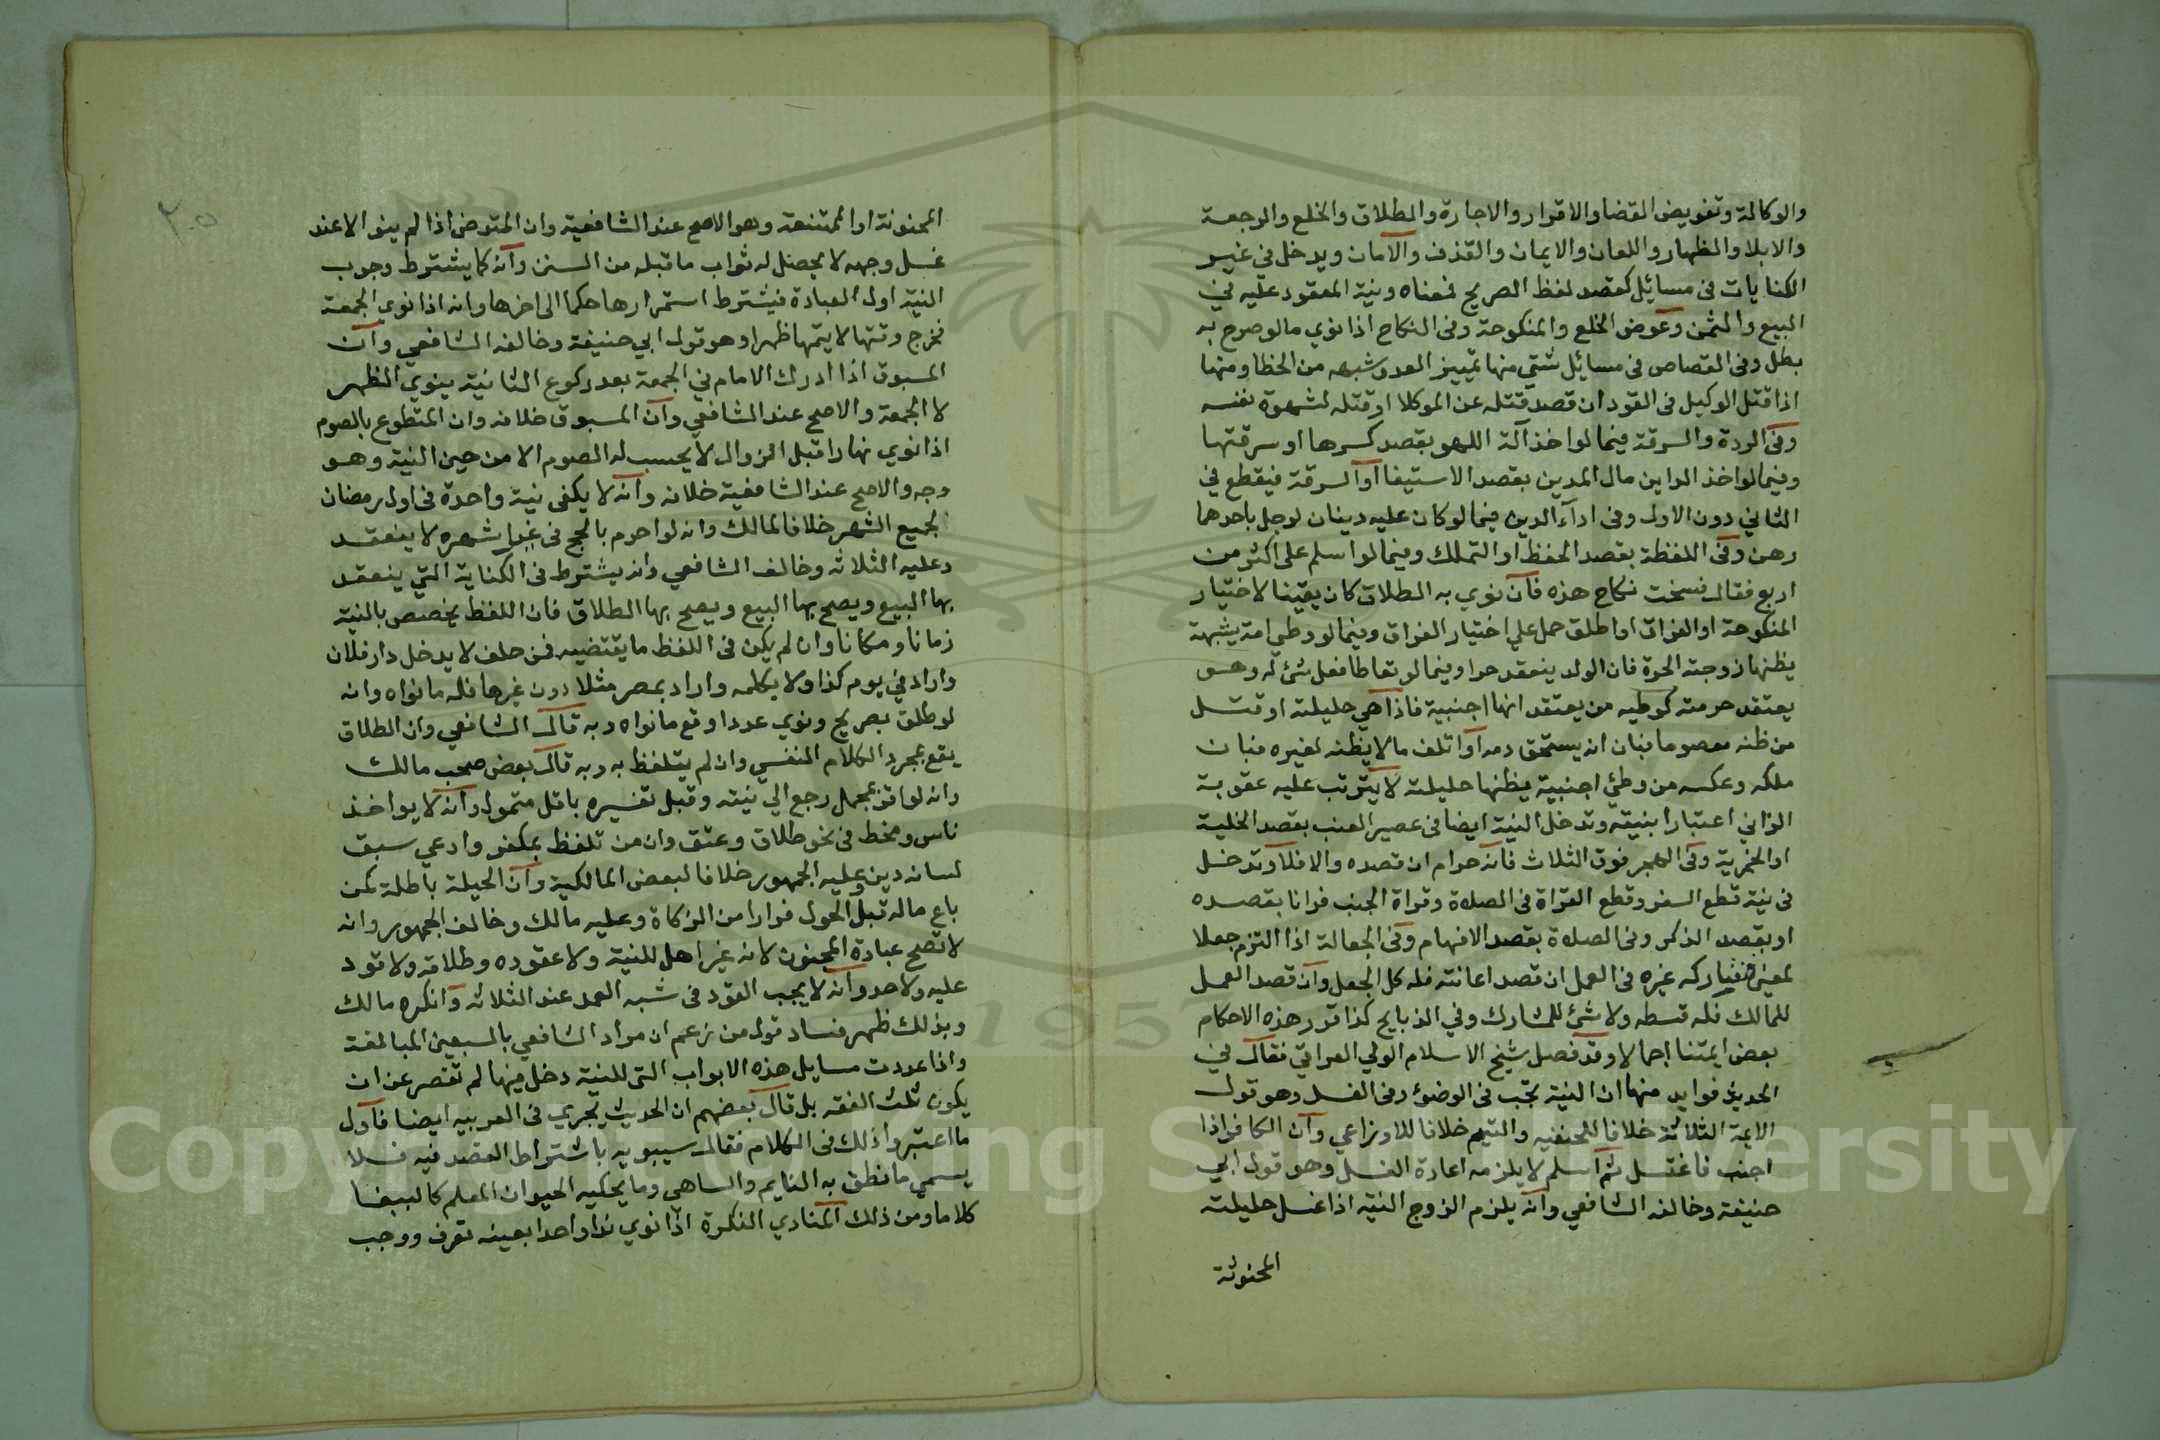 والوكالة وتفويض القضا والاقرار والاجارة والطلاق والخلع والرجعة
والايلا والظهار واللعان والايمان والقذف والامان ويدخل في غير
الكنايات في مسائل كقصد لفظ الصريح لمعناه ونية المعقود عليه في
البيع والثمن وعوض الخلع والمنكوحة وفي النكاح اذا نوي مالو صرح به
بطل وفي القصاص في مسائل شتي منها تمييز العمد وشبهه من الخطا ومنها
اذا قتل الوكيل في القود ان قصد قتله عن الموكلا او قتله لشهوة نفسه
وفي الردة والسرقة فيما لو اخذ آلة اللهو بقصد كسرها او سرقتها
وفيما لو اخذ الداين مال المدين بقصد الاستيفا او السرقة فيقطع في
الثاني دون الاول وفي اداء الدين فيما لو كان عليه دينان لرجل باحدهما
رهن وفي اللقطة بقصد الحفظ او التملك وفيما لو اسلم علي اكثر من
اربع فقال فسخت نكاح هذه فان نوي به الطلاق كان يقينا لاختيار
المنكوحة او الفراق او اطلق حمل علي اختيار الفراق وفيما لو وطي امة بشبهة
يظنها زوجته الحرة فان الولد ينعقد حرا وفيما لو تعاطا فعل شئ له وهو
يعتقد حرمته كوطيه من يعتقد انها اجنبية فاذا هي حليلته او قتل
من ظنه معصوما فبان انه يستحق دمه او اتلف مالا يظنه لغيره فبان
ملكه وعكسه من وطئ اجنبية يظنها حليلته لا يترتب عليه عقوبة
الزاني اعتبارا بنيته وتدخل النية ايضا في عصير العنب بقصد الخلية
او الخمرية وفي الهجر فوق الثلاث فانه حرام ان قصده والا فلا وتدخل
في نية قطع السفر وقطع القراة في الصلاة وقراة الجنب قرانا بقصده
او بقصد الذكر وفي الصلاة بقصد الافهام وفي الجعالة اذا التزم جعلا
لمعين فشاركه غيره في العمل ان قصد اعانته فله كل الجعل وان قصد العمل
للمالك فله قسطه ولا شئ للمشارك وفي الذبايح كذا قرر هذه الاحكام
بعض ايمتنا اجمالا وقد فصل شيخ الاسلام الولي العراقي فقال في
الحديث فوايد منها ان النية تجب في الوضوء وفي الغسل وهو قول
الايمة الثلاثة خلافا للحنفيه والتيمم خلافا للاوزاعي وان الكافر اذا
اجنب فاغتسل ثم اسلم لا يلزمه اعادة الغسل وهو قول ابي
حنيفة وخالفه الشافعي وانه يلزم الزوج النية اذا غسل حليلته
المجنونة
المجنونة او الممتنعة وهو الاصح عند الشافعية وان المتوضئ اذا لم ينو الا عند
غسل وجهه لا يحصل له ثواب ما قبله من السنن وانه كما يشترط وجوب
النية اول العبادة فيشترط استمرارها حكما الي اخرها وانه اذا نوي الجمعة
فخرج وقتها لا يتمها ظهرا وهو قول ابي حنيفة وخالفه الشافعي وان
المسبوق اذا ادرك الامام في الجمعة بعد ركوع الثانية ينوي الظهر
لا الجمعة والاصح عند الشافعي وان المسبوق خلافه وان المتطوع بالصوم
اذا نوي نهارا قبل الزوال لا يحسب له الصوم الا من حين النية وهو
وجه والاصح عند الشافعية خلافه وانه لا يكفي نية واحدة في اول رمضان
لجميع الشهر خلافا لمالك وانه لو احرم بالحج في غير اشهره لا ينعقد
وعليه الثلاثه وخالف الشافعي وانه يشترط في الكناية التي ينعقد
بها البيع ويصح بها البيع ويصح بها الطلاق فان اللفظ يخصص بالنية
زمانا ومكانا وان لم يكن في اللفظ ما يقتضيه فمن حلف لا يدخل دار فلان
واراد في يوم كذا ولا يكلمه واراد بمصر مثلا دون غيرها فله ما نواه وانه
لو طلق بصريح ونوي عددا وقع ما نواه وبه قال الشافعي وان الطلاق
يقع بمجرد الكلام النفسي وان لم يتلفظ به وبه قال بعض صحب مالك
وانه لو اقر بمجمل رجع الي نيته وقبل تفسيره باقل متمول وانه لا يواخذ
ناس ومخط في نحو طلاق وعتق وان من تلفظ بمكفر وادعي سبق
لسانه دين وعليه الجمهور خلافا لبعض المالكية وان الحيلة باطلة كمن
باع ماله قبل الحول فرارا من الزكاة وعليه مالك وخالف الجمهور وانه
لا تصح عبادة المجنون لانه غير اهل للنية ولا عقوده وطلاقه ولا قود
عليه ولا حد وانه لا يجب القود في شبه العمد عند الثلاثه وانكره مالك
وبذلك ظهر فساد قول من زعم ان مراد الشافعي بالسبعين المبالغة
واذا عددت مسايل هذه الابواب التي للنية دخل فيها لم تقصر عن ان
يكون ثلث الفقه بل قال بعضهم ان الحديث يجري في العربيه ايضا فاول
ما اعتبروا ذلك في الكلام فقال سيبويه باشتراط القصد فيه فلا
يسمي ما نطق به النايم والساهي وما يحكيه الحيوان المعلم كالببغا
كلاما ومن ذلك المنادي النكرة اذا نوي ندا واحدا بعينه تعرف ووجب